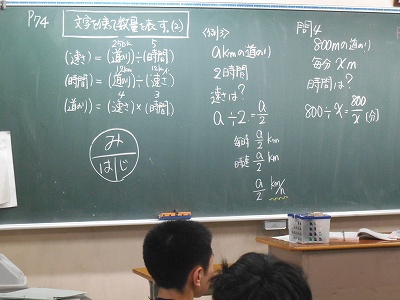 P74
文字を使って数量を表す。(2)
250km 5
(速さ)=(道のり)÷(時間)
12km 12km/
(時間)=(道のり)÷(速さ)
4 3
(道のり)=(速さ)×(時間)
み
は じ
例3
akmの道のり
2時間
速さは?
a÷2=a/2
毎時 a/2 km
時速 a/2 km
a/2 km/h
問4
800mの道のり
毎分 xm
時間は?
800÷x=800/x (分)